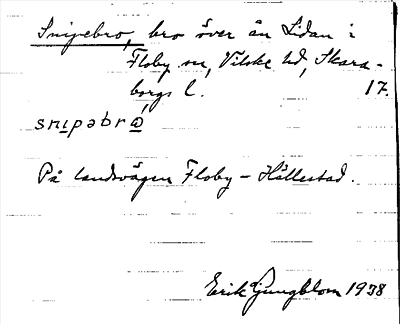 Snipebro, bro över ån Lidan i
Floby sn, Vilske hd, Skara-
borgs l. 17.
snipəbrω
På landsvägen Floby – Hällestad.
Erik Ljungblom 1938